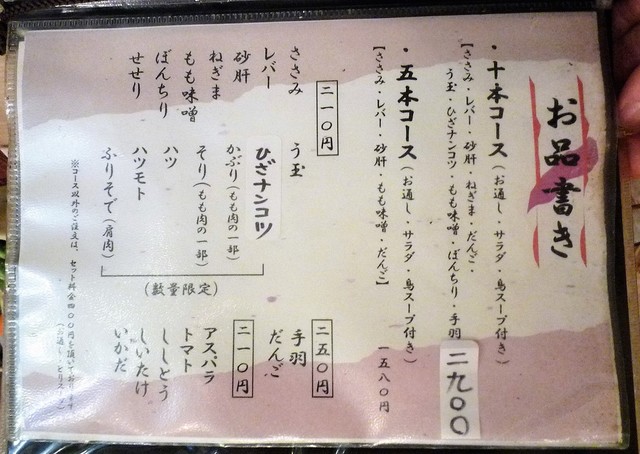 お品書き
・十本コース(お通し・サラダ・鳥スープ付き)
【ささみ・レバー・砂肝・ねぎま・だんご・
うう玉・ひざナンコツ・もも味噌・ぼんちり・手羽
二九〇〇
・五本コース(お通し・サラダ・鳥スープ付き)
【ささみ・レバー・砂肝・もも味噌・だんご】
一五八〇円
二一〇円
ささみ
レバー
砂肝
ねぎま
もも味噌
ぼんちり
せせり
う玉
ひざナンコツ
かぶり(もも肉の一部)
そり(もも肉の一部)
ハツ
ハツモト
ふりそで(肩肉)
(数量限定)
二五〇円
手羽
だんご
二一〇円
アスパラ
トマト
ししとう
しいたけ
いかだ
※コース以外のご注文は、セット料金四〇〇円を頂いております
(お通し・とりスープ)